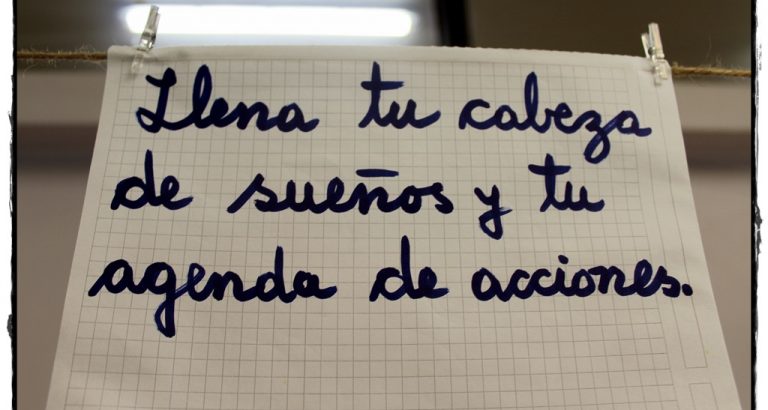 Llena tu cabeza
de sueños y tu
agenda de acciones.